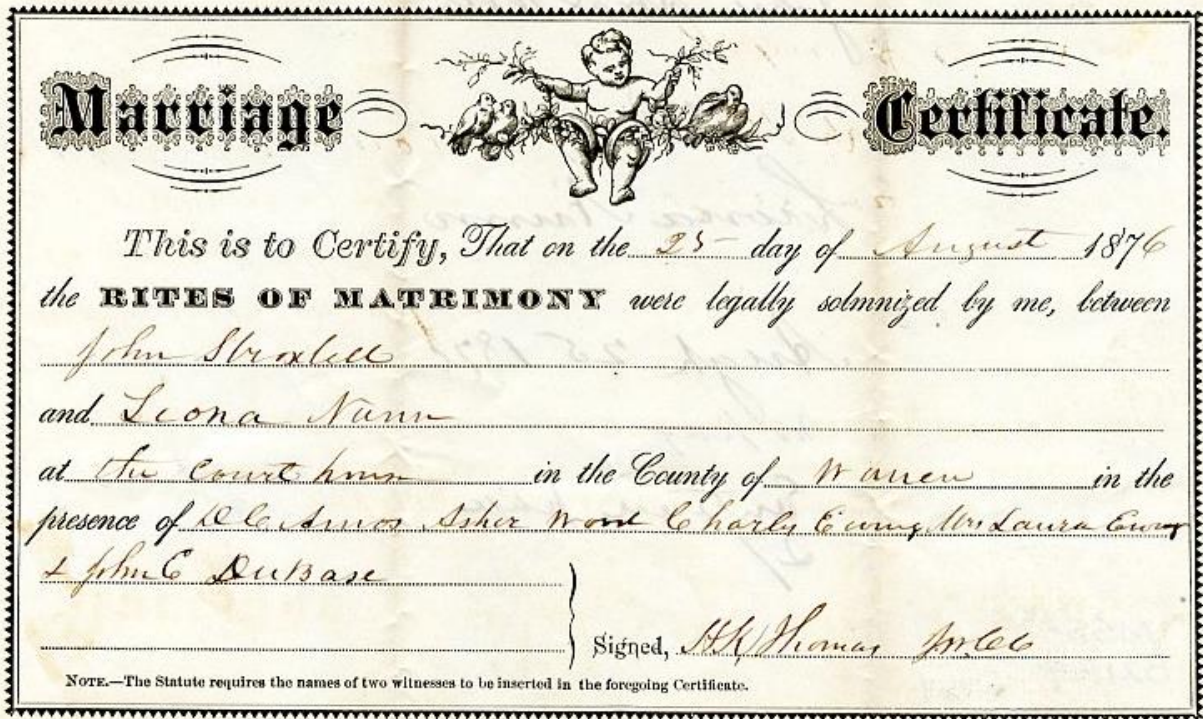 Marriage Certificate.
This is to Certify, That on the 25 day of August 1876
the RITES OF MATRIMONY were legally solmnized by me, between
John
and Leona Nunn
at the Court house in the County of Warren in the
presence of D C Amos Asher Wood Charly Ewing Mrs Laura Ewing
+ John C DuBase
Signed, Thomas
NOTE.—The Statute requires the names of two witnesses to be inserted in the foregoing Certificate.